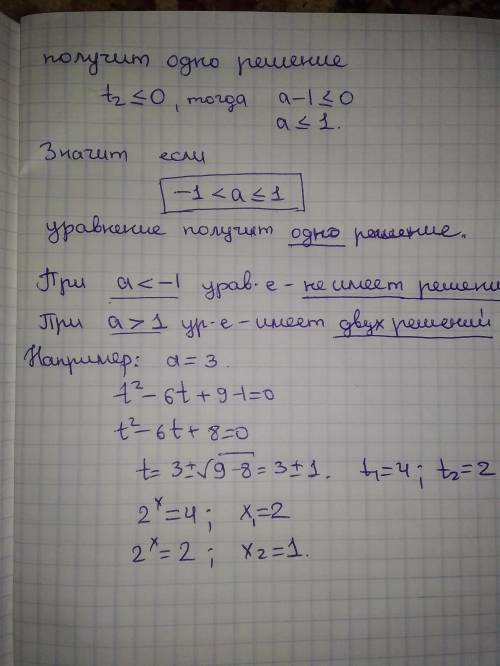 получит одно решение
t₂ ≤ 0, тогда a-1 ≤ 0
a ≤ 1.
Значит если
-1 < a ≤ 1
уравнение получит одно решение.
При a < -1 урав-е - не имеет решени
При a > 1 ур-е - имеет двух решений
Например: a = 3.
t² - 6t + 9-1=0
t² - 6t + 8=0
t = 3 ± √9-8 = 3 ± 1. t₁=4; t₂=2
2ˣ = 4; x₁=2
2ˣ = 2; x₂=1.